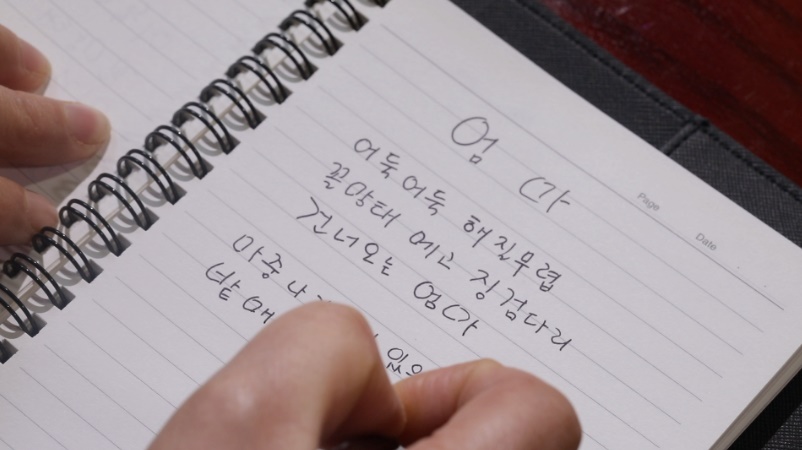 Page
Date
엄마
어둑어둑 해질무렵
꼴망태 메고 징검다리
건너오는 엄마
마중나